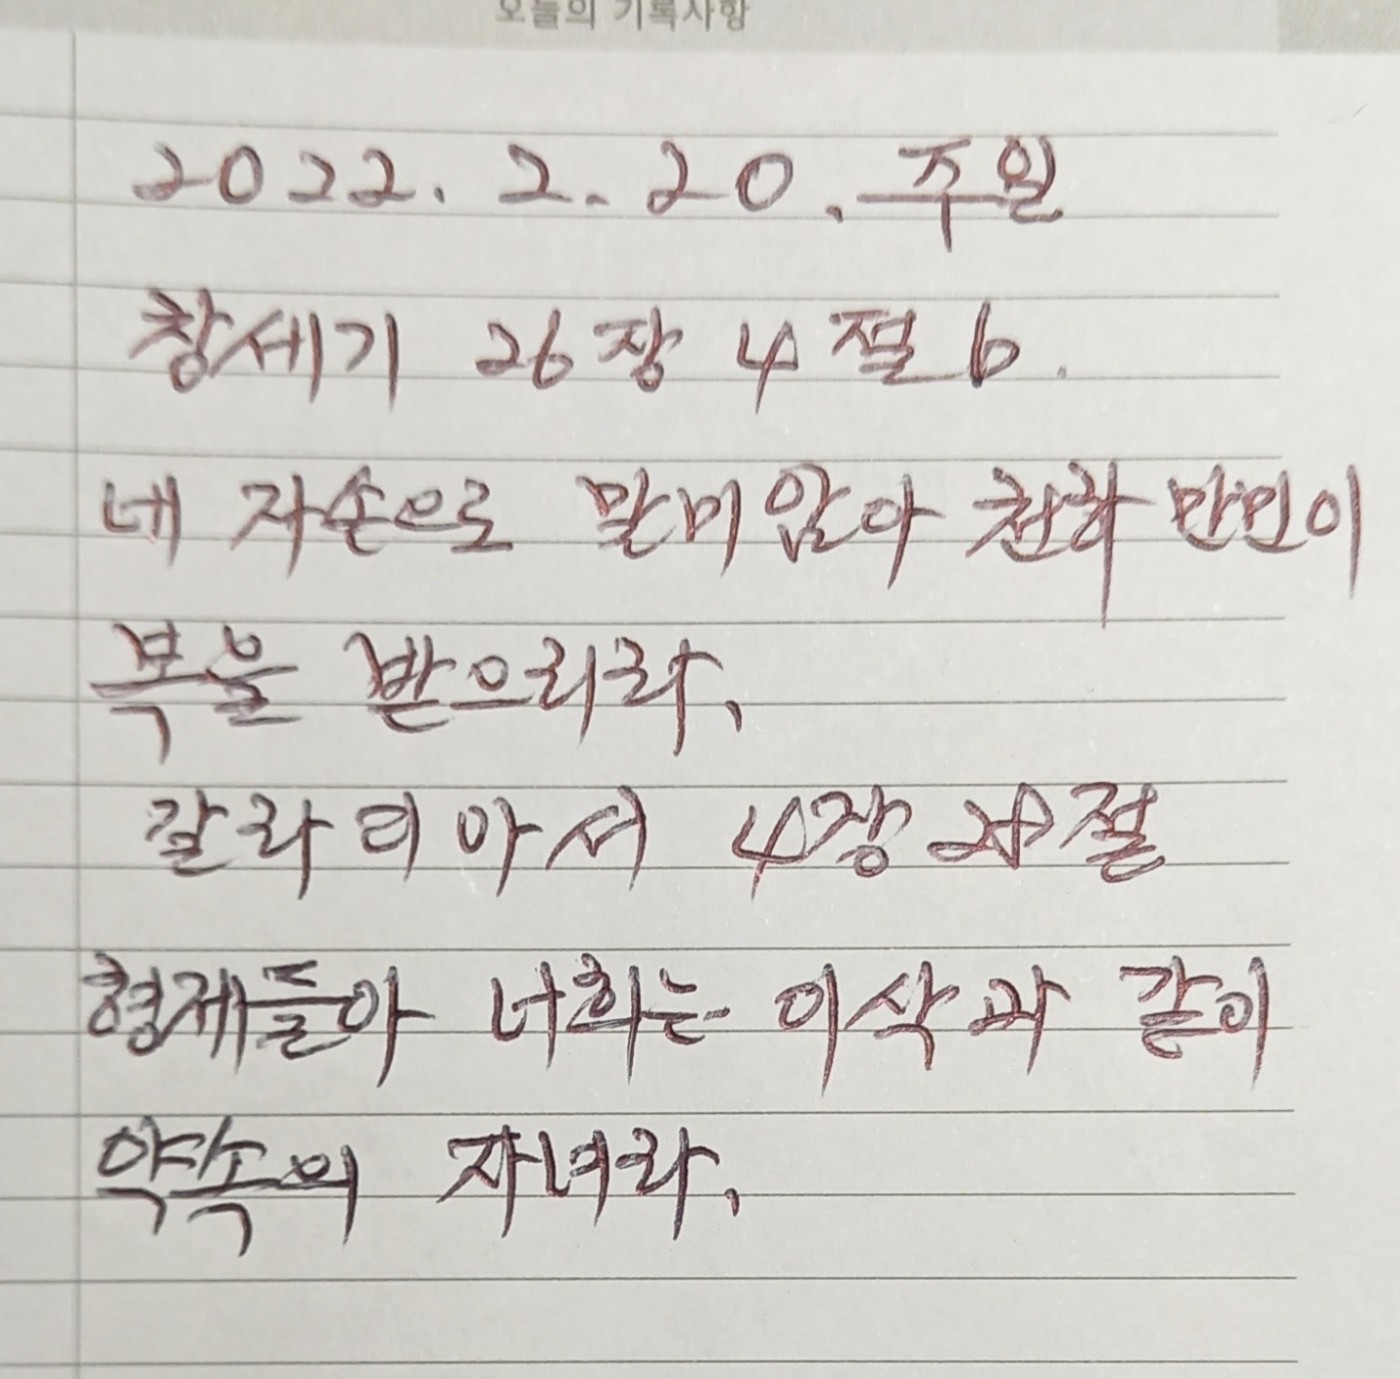 오늘의 기록사항
2022. 2. 20. 주일
창세기 26장 4절 b.
네 자손으로 말미암아 천하 만민이
복을 받으리라.
갈라디아서 4장 28절
형제들아 너희는 이삭과 같이
약속의 자녀라.